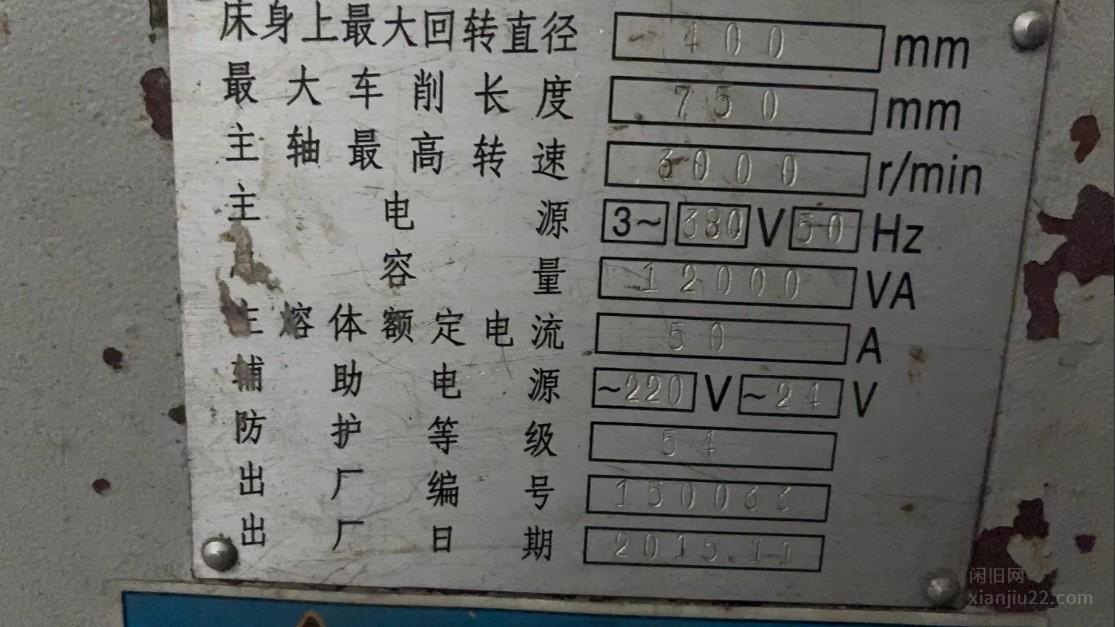 床身上最大回转直径 400 mm
最大车削长度 750 mm
主轴最高转速 3000 r/min
主电源 3~ 380 V 50 Hz
容量 12000 VA
主熔体额定电流 50 A
辅助电源 ~220 V ~24 V
防护等级 54
出厂编号 150033
出厂日期 2015.11
闲旧网
xianjiu22.com